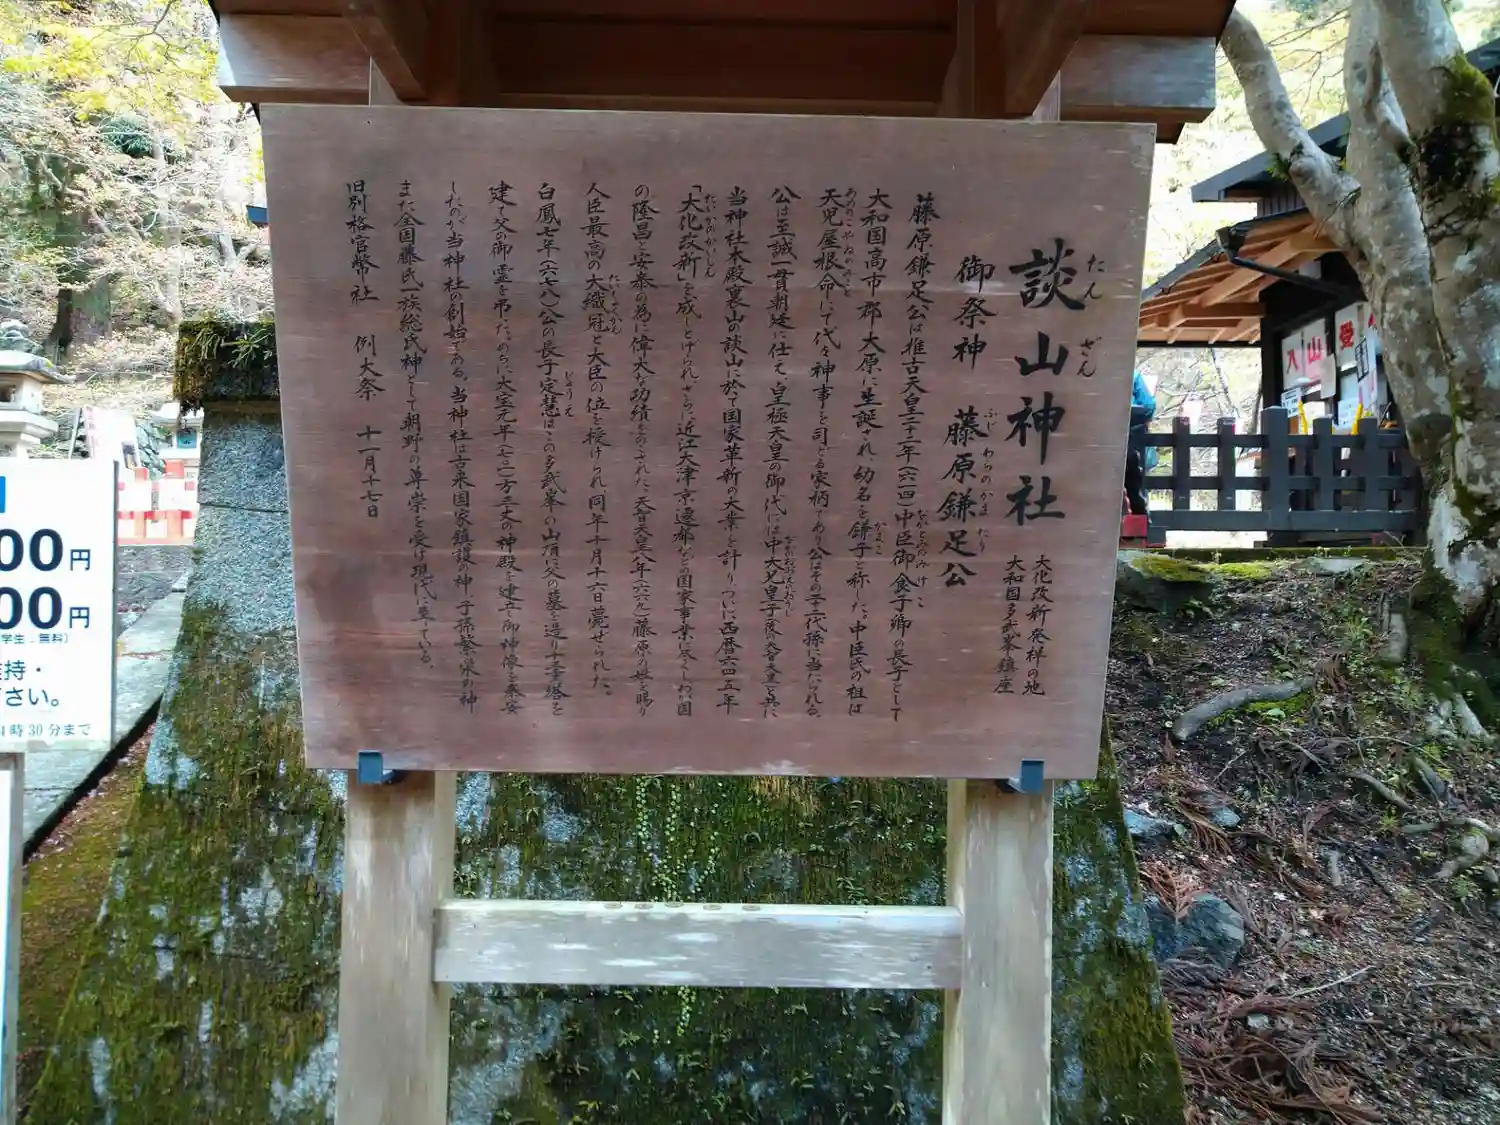 談山神社
たん ざん
大化改新発祥の地
大和国多武峯鎮座
御祭神 藤原鎌足公
ふじ わらのかま たり
藤原鎌足公は推古天皇二十二年(六一四)中臣御食子卿の長子として
大和国高市郡大原に生誕され、幼名を鎌子と称した。中臣氏の祖は
天児屋根命にして代々神事を司どる家柄であり公はその二十二代孫に当たられる。
公は至誠一貫朝廷に仕え皇極天皇の御代には中大兄皇子(後の天智天皇)と共に
当神社本殿裏山の談山に於て国家革新の大業を計りついに西暦六四五年
「大化改新」を成しとげられ、さらに近江大津京遷都などの国家事業に尽くしわが国
の隆昌と安泰の為に偉大な功績をのこされた、天智天皇八年(六六九)藤原の姓を賜り
人臣最高の大織冠と大臣の位を授けられ同年十月十六日薨ぜられた。
白鳳七年(六七八)公の長子定慧はこの多武峯の山頂に父の墓を造り十三重塔を
建て父の御霊を弔った。のちに大宝元年(七〇一)方三丈の神殿を建立、御神像を奉安
したのが当神社の創始である。当神社は古来国家鎮護の神、子孫繁栄の神
また全国藤氏一族総氏神として朝野の尊崇を受け現代に至っている。
旧別格官幣社 例大祭 十一月十七日
00円
00円
学生:無料)
維持・
ださい。
4時30分まで
入山受